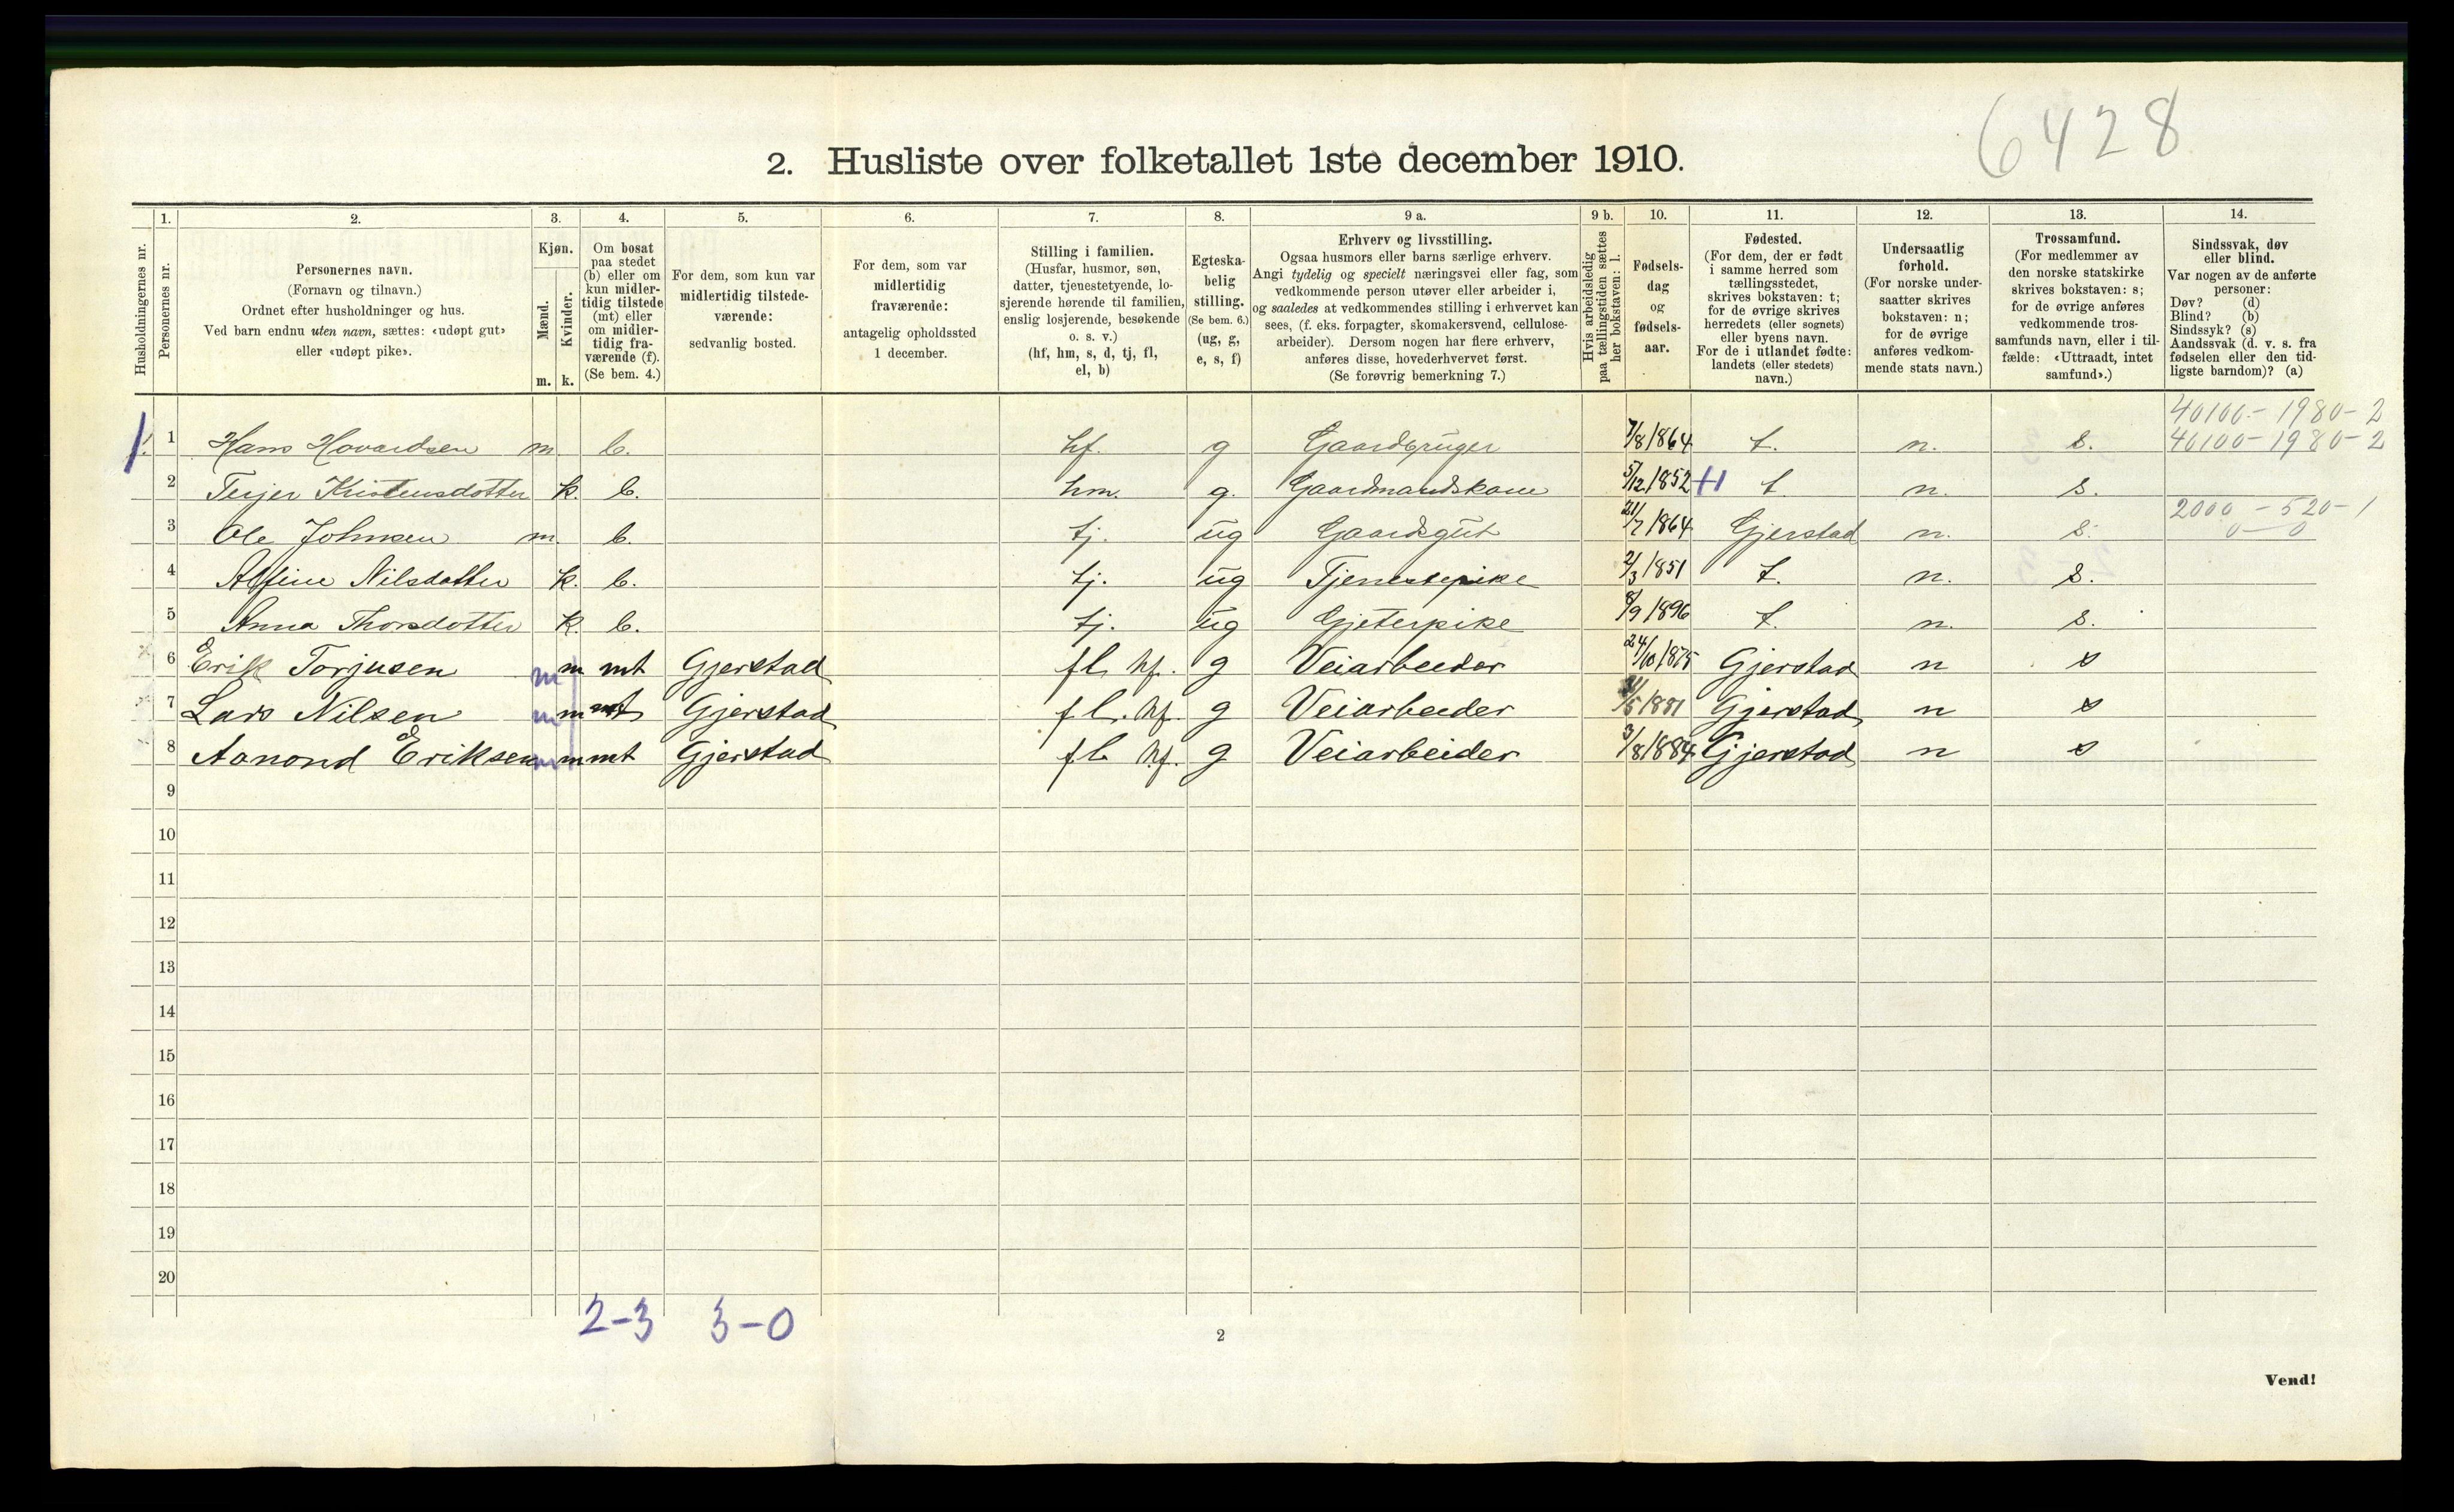 6428
2. Husliste over folketallet 1ste december 1910.
Husholdningernes nr.
1. Personernes nr.
2. Personernes navn. (Fornavn og tilnavn.) Ordnet efter husholdninger og hus. Ved barn endnu uten navn, sættes: «udøpt gut» eller «udøpt pike».
3. Kjøn. Mænd. m. Kvinder. k.
4. Om bosat paa stedet (b) eller om kun midlertidig tilstede (mt) eller om midlertidig fraværende (f). (Se bem. 4.)
5. For dem, som kun var midlertidig tilstedeværende: sedvanlig bosted.
6. For dem, som var midlertidig fraværende: antagelig opholdssted 1 december.
7. Stilling i familien. (Husfar, husmor, søn, datter, tjenestetyende, losjerende hørende til familien, enslig losjerende, besøkende o. s. v.) (hf, hm, s, d, tj, fl, el, b)
8. Egteskabelig stilling. (Se bem. 6.) (ug, g, e, s, f)
9 a. Erhverv og livsstilling. Ogsaa husmors eller barns særlige erhverv. Angi tydelig og specielt næringsvei eller fag, som vedkommende person utøver eller arbeider i, og saaledes at vedkommendes stilling i erhvervet kan sees, (f. eks. forpagter, skomakersvend, cellulosearbeider). Dersom nogen har flere erhverv, anføres disse, hovederhvervet først. (Se forøvrig bemerkning 7.)
9 b. Hvis arbeidsledig paa tællingstiden sættes her bokstaven: l.
10. Fødselsdag og fødselsaar.
11. Fødested. (For dem, der er født i samme herred som tællingsstedet, skrives bokstaven: t; for de øvrige skrives herredets (eller sognets) eller byens navn. For de i utlandet fødte: landets (eller stedets) navn.)
12. Undersaatlig forhold. (For norske undersaatter skrives bokstaven: n; for de øvrige anføres vedkommende stats navn.)
13. Trossamfund. (For medlemmer av den norske statskirke skrives bokstaven: s; for de øvrige anføres vedkommende trossamfunds navn, eller i tilfælde: «Uttraadt, intet samfund».)
14. Sindssvak, døv eller blind. Var nogen av de anførte personer: Døv? (d) Blind? (b) Sindssyk? (s) Aandssvak (d. v. s. fra fødselen eller den tidligste barndom)? (a)
40100 - 1980 - 2
1. 1 Hans Hovardsen m. b. hf. g Gaardbruger 7/8 1864 t. n. s. 40100 - 1980 - 2
2 Terjer Kristensdotter k. b. hm. g. Gaardmandskone 5/12 1852 t. n. s.
2000 - 520 - 1
3 Ole Johnsen m. b. tj. ug Gaardsgut 21/7 1864 Gjerstad n. s. 0 - 0
4 Alfine Nilsdatter k. b. tj. ug Tjenestepike 2/3 1851 t. n. s.
5 Anna Thorsdotter k. b. tj. ug Gjeterpike 8/9 1896 t. n. s.
6 Erik Torjusen m m mt Gjerstad fl hf. g Veiarbeider 24/10 1875 Gjerstad n s
7 Lars Nilsen m m mt Gjerstad fl. hf. g Veiarbeider /5 1881 Gjerstad n s
8 Aanond Eriksen m m mt Gjerstad fl hf. g Veiarbeider 3/8 1884 Gjerstad n s
9
10
11
12
13
14
15
16
17
18
19
20
2-3 3-0
2
Vend!